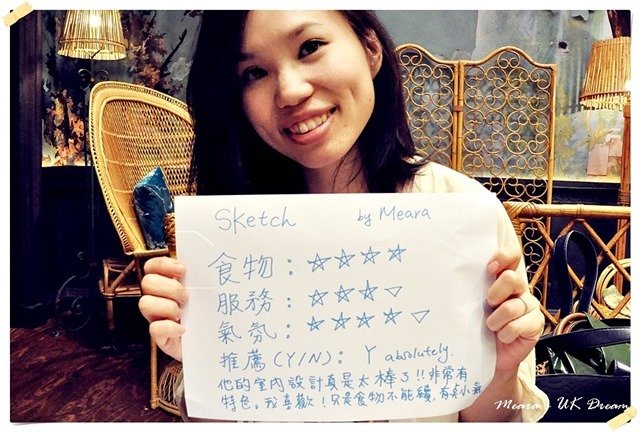 Sketch by Meara
食物：☆☆☆☆
服務：☆☆☆▽
氣氛：☆☆☆☆▽
推薦(Y/N)：Y absolutely.
他的室內設計真是太棒了!!非常有
特色。我喜歡！只是食物不能續,有点小氣
Meara UK Dream